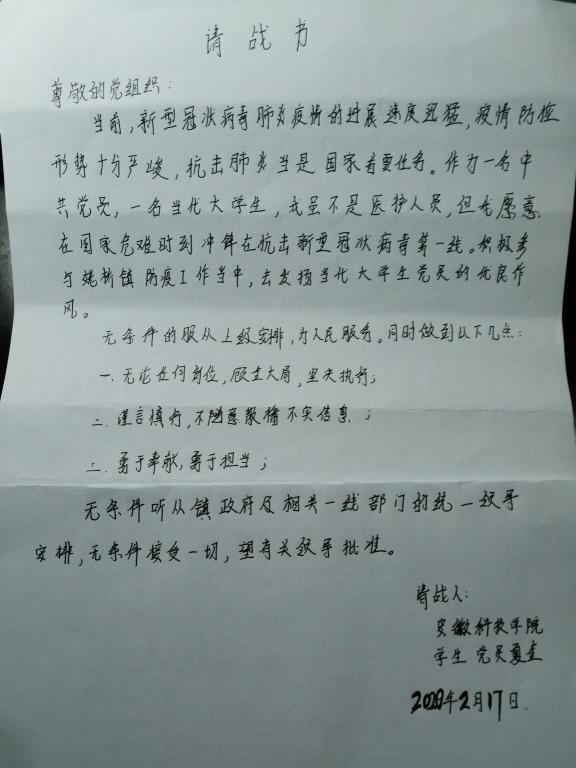 请战书
尊敬的党组织：
当前，新型冠状病毒肺炎疫情的进展速度迅猛，疫情防控
形势十分严峻，抗击肺炎当是国家首要任务。作为一名中
共党员，一名当代大学生，我虽不是医护人员，但我愿意
在国家危难时刻冲锋在抗击新型冠状病毒第一线。积极参
与姚桥镇防疫工作当中，去发扬当代大学生党员的优良作
风。
无条件的服从上级安排，为人民服务。同时做到以下几点：
一. 无论任何岗位，顾全大局，坚决执行；
二. 谨言慎行，不随意散播不实信息；
三. 勇于奉献，勇于担当；
无条件听从镇政府及相关一线部门的统一领导
安排，无条件接受一切，望有关领导批准。
请战人：
安徽科技学院
学生 党员夏
2020年2月17日.